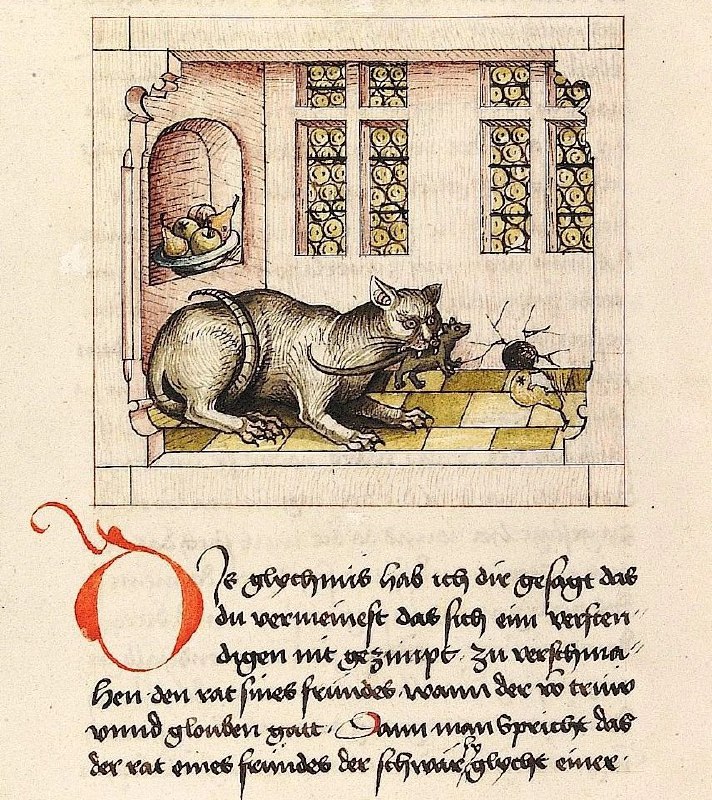 DIs glychnis hab ich dir gesagt das
du vermeinest das sich eim versten⸗
digen nit gezimpt · zu verschma⸗
hen · den rat sines fründes · wann der vō trüw
vnnd glouben gatt · Dann man spricht das
der rat eines fründes der glycht einer ·